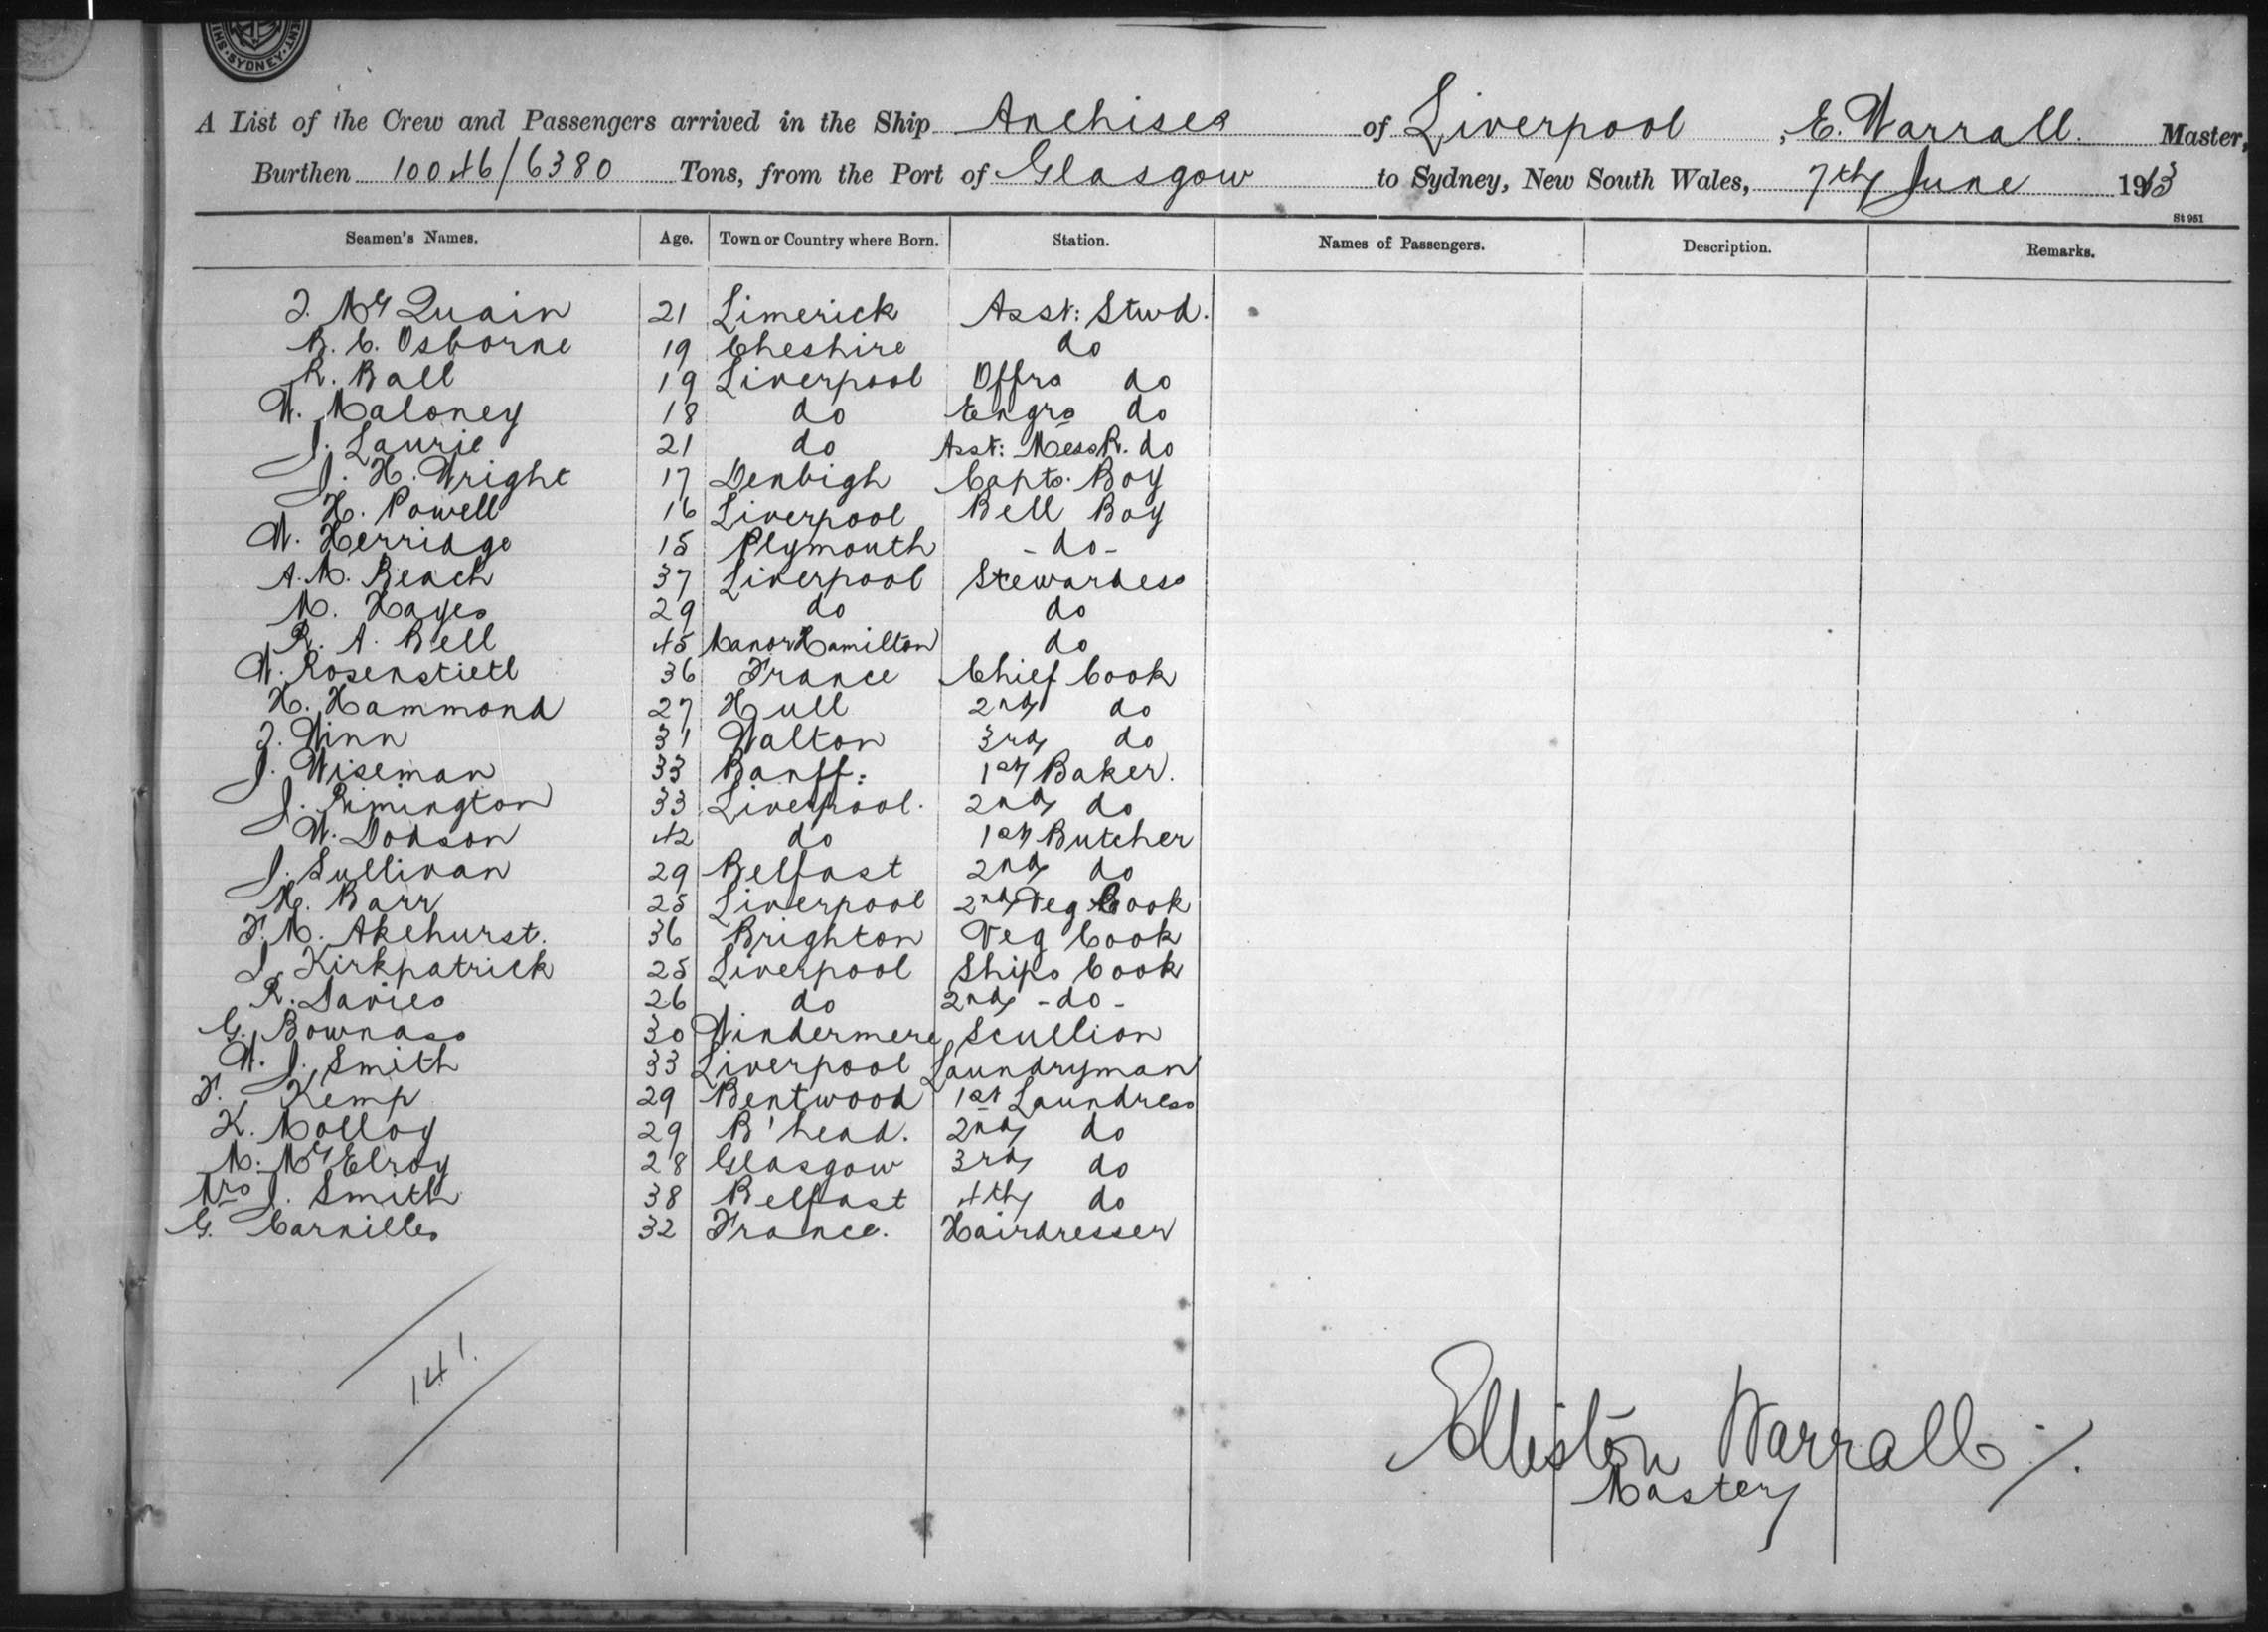 SYDNEY
A List of the Crew and Passengers arrived in the Ship Anchises of Liverpool, E. Warrall. Master,
Burthen 10046/6380 Tons, from the Port of Glasgow to Sydney, New South Wales, 7th June 1913
St 951
Seamen's Names. Age. Town or Country where Born. Station. Names of Passengers. Description. Remarks.
J. Mc Quain 21 Limerick Asst: Stwd.
B. C. Osborne 19 Cheshire do
R. Ball 19 Liverpool Offrs do
W. Maloney 18 do Engrs do
J. Laurie 21 do Asst: Mess R. do
J. H. Wright 17 Denbigh Capts. Boy
H. Powell 16 Liverpool Bell Boy
W. Herridge 15 Plymouth - do -
A. M. Beach 37 Liverpool Stewardess
M. Hayes 29 do do
R. A. Bell 45 Manor Hamilton do
W. Rosenstietl 36 France Chief Cook
H. Hammond 27 Hull 2nd do
J. Winn 31 Walton 3rd do
J. Wiseman 33 Banff: 1st Baker.
J. Rimington 33 Liverpool. 2nd do
W. Dodson 42 do 1st Butcher
J. Sullivan 29 Belfast 2nd do
H. Barr 25 Liverpool 2nd Veg Cook
F. M. Akehurst. 36 Brighton Veg Cook
J. Kirkpatrick 25 Liverpool Ships Cook
R. Davies 26 do 2nd - do -
G. Bownass 30 Windermere Scullion
W. J. Smith 33 Liverpool Laundryman
F. Kemp 29 Bentwood 1st Laundress
K. Molloy 29 B'head. 2nd do
M. McElroy 28 Glasgow 3rd do
Mrs J. Smith 38 Belfast 4th do
G. Carnilles 32 France. Hairdresser
141.
Elliston Warrall
Master